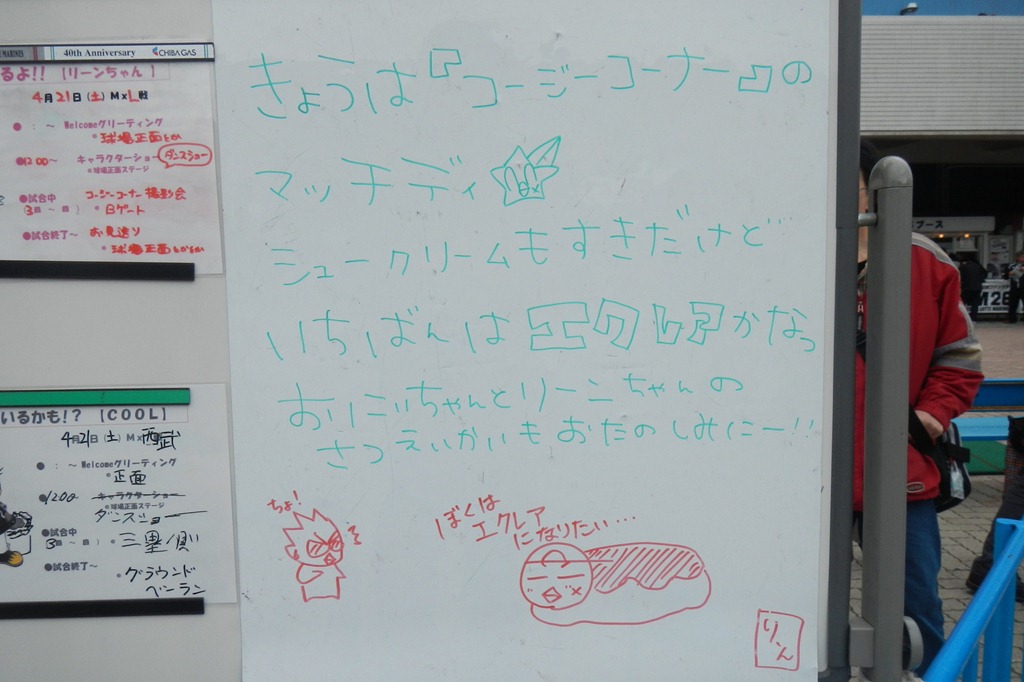 MARINES 40th Anniversary CHIBA GAS
るよ!! 【リーンちゃん】
4月21日(土) M×L戦
● : ～ Welcomeグリーティング
*球場正面とか
●1200～ キャラクターショー ダンスショー
*球場正面ステージ
●試合中 コージーコーナー撮影会
(3回～ 回) *Bゲート
●試合終了～ お見送り
*球場正面とか
いるかも!? 【COOL】
4月21日(土) M×西武
● : ～ Welcomeグリーティング
*正面
●1200 キャラクターショー
*球場正面ステージ
ダンスショー
●試合中 三塁側
(3回～ 回)
●試合終了～
*グラウンド
ベーラン
きょうは『コージーコーナー』の
マッチデイ
シュークリームもすきだけど
いちばんはエクレアかなっ
おりごいちゃんとリーンちゃんの
さつえいかいもおたのしみにー!!
ちょ!
ぼくは
エクレア
になりたい…
りん
ブース
M26